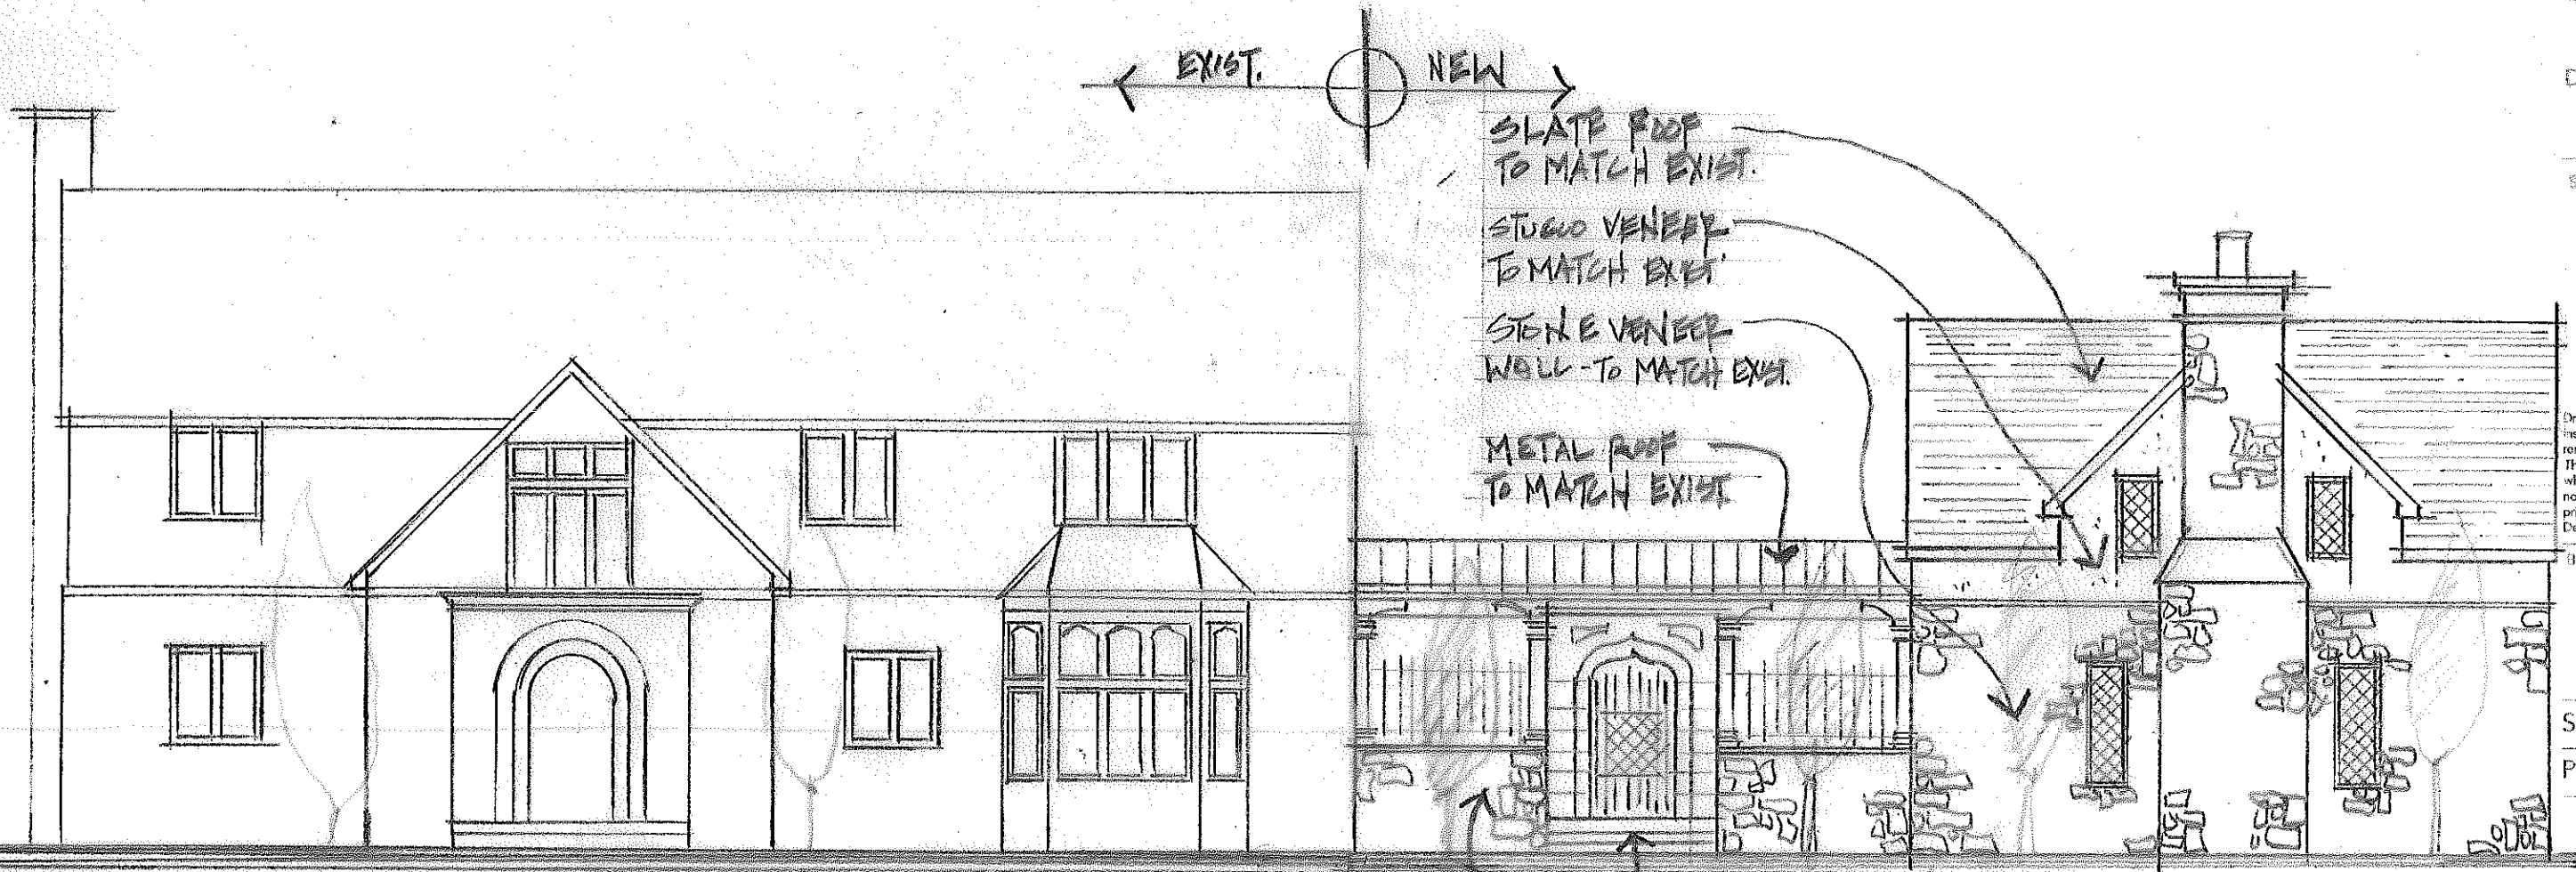 EXIST.
NEW
SLATE ROOF
TO MATCH EXIST.
STUCCO VENEER
TO MATCH EXIST.
STONE VENEER
WALL - TO MATCH EXIST.
METAL ROOF
TO MATCH EXIST.